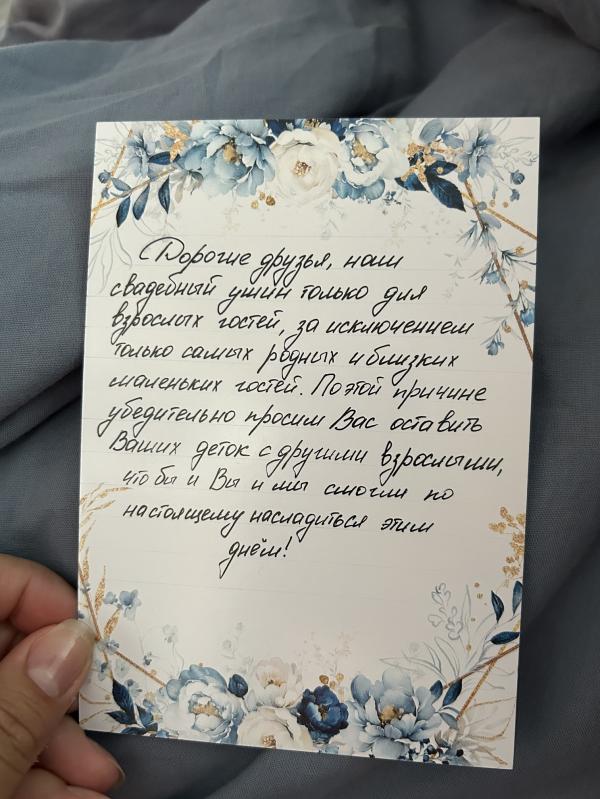 Дорогие друзья, наш
свадебный ужин только для
взрослых гостей, за исключением
только самых родных и близких
маленьких гостей. По этой причине
убедительно просим Вас оставить
Ваших деток с другими взрослыми,
что бы и Вы и мы смогли по
настоящему насладиться этим
днём!